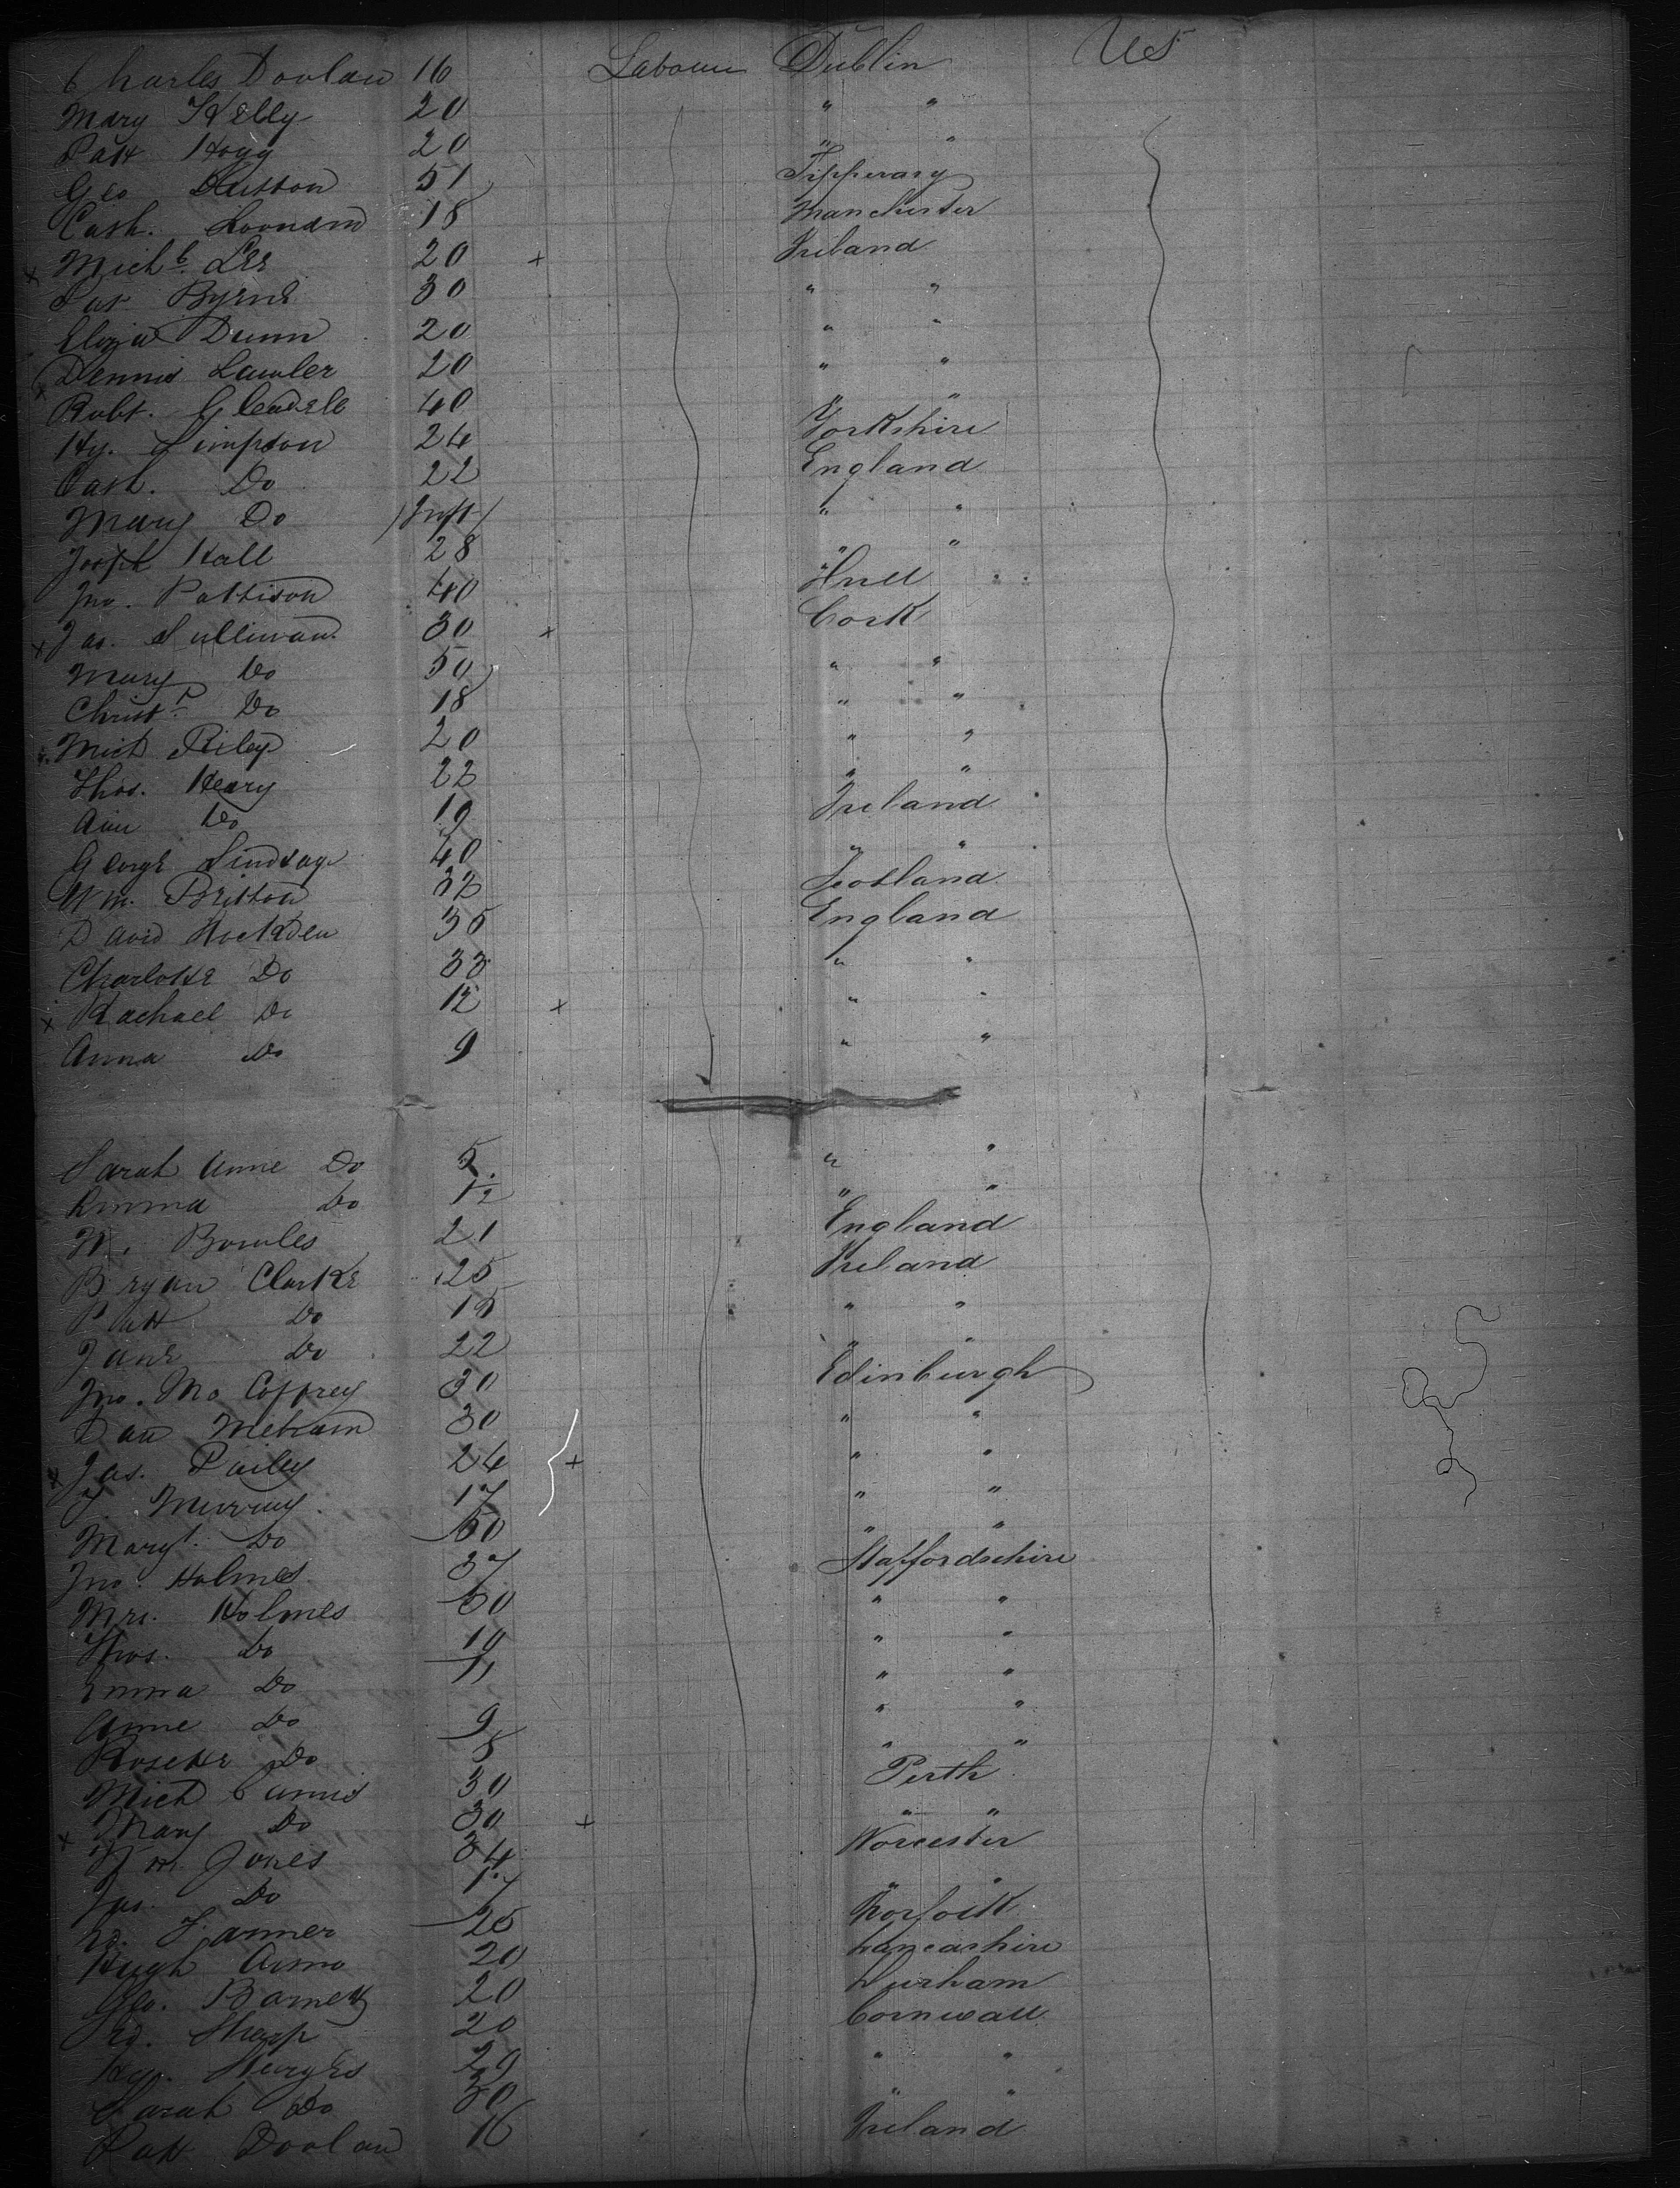 Charles Doolan 16 Labourer Dublin US
Mary Kelly 20 " "
Patt Hogg 20 " "
Geo Dutton 51 Tipperary
Cath. 18 Manchester
x Michl. Lee 20 + Ireland
Pat Byrne 30 " "
Eliza Dunn 20 " "
x Dennis Lawler 20 " "
Robt. 40 " "
Hy. Simpson 24 Yorkshire
Cath. Do 22 England
Mary Do /Inft/ " "
Joseph Hall 28 " "
Jno. Pattison 40 Hull
x Jas. Sullivan 30 x Cork
Mary Do 50 " "
Christr. Do 18 " "
Mich Riley 20 " "
Thos. Henry 22 " "
Ann Do 19 Ireland
George Lindsay 40 " "
Wm. Britton 32 Scotland
David Hockden 35 England
Charlotte Do 33 " "
x Rachael Do 12 x " "
Anna Do 9 " "
Sarah Anne Do 5 " "
Emma Do 1½ " "
Bowles 21 England
Bryan Clarke 25 Ireland
Patt Do " "
Jane Do 22 " "
Jno. Mc Coffrey 30 Edinburgh
Dan 30 " "
x Jas. 24 + " "
J Murray 17 " "
Margt. Do 50 " "
Jno. Holmes 37 Staffordschire
Mrs. Holmes " "
Thos. Do 19 " "
Emma Do 11 " "
Anne Do 9 " "
Do " "
Mich 30 Perth
x Mary Do 30 + " "
Wm. Jones 34 Worcester
Jas. Do 17 " "
Farmer 25 Norfolk
Hugh 20 Lancashire
Geo. Barnett 20 Durham
Sharp 20 Cornwall
Hy. 29 " "
Sarah Do 30 " "
Patt Doolan 16 Ireland